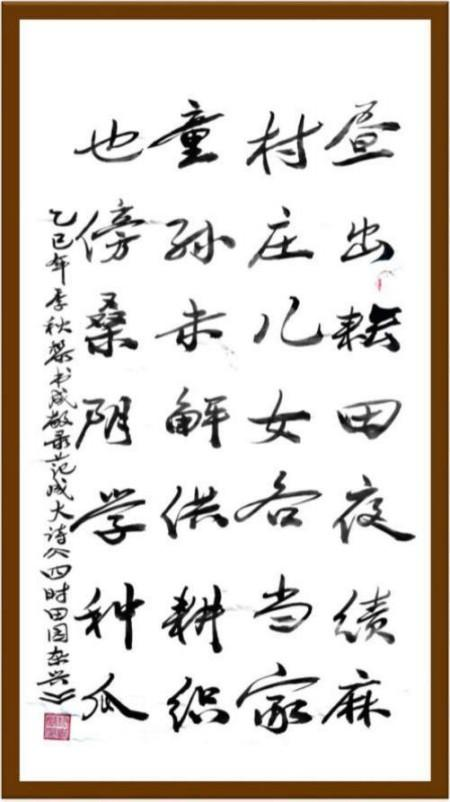 昼出耘田夜绩麻
村庄儿女各当家
童孙未解供耕织
也傍桑阴学种瓜
乙巳年季秋书成敬录范成大诗《四时田园杂兴》